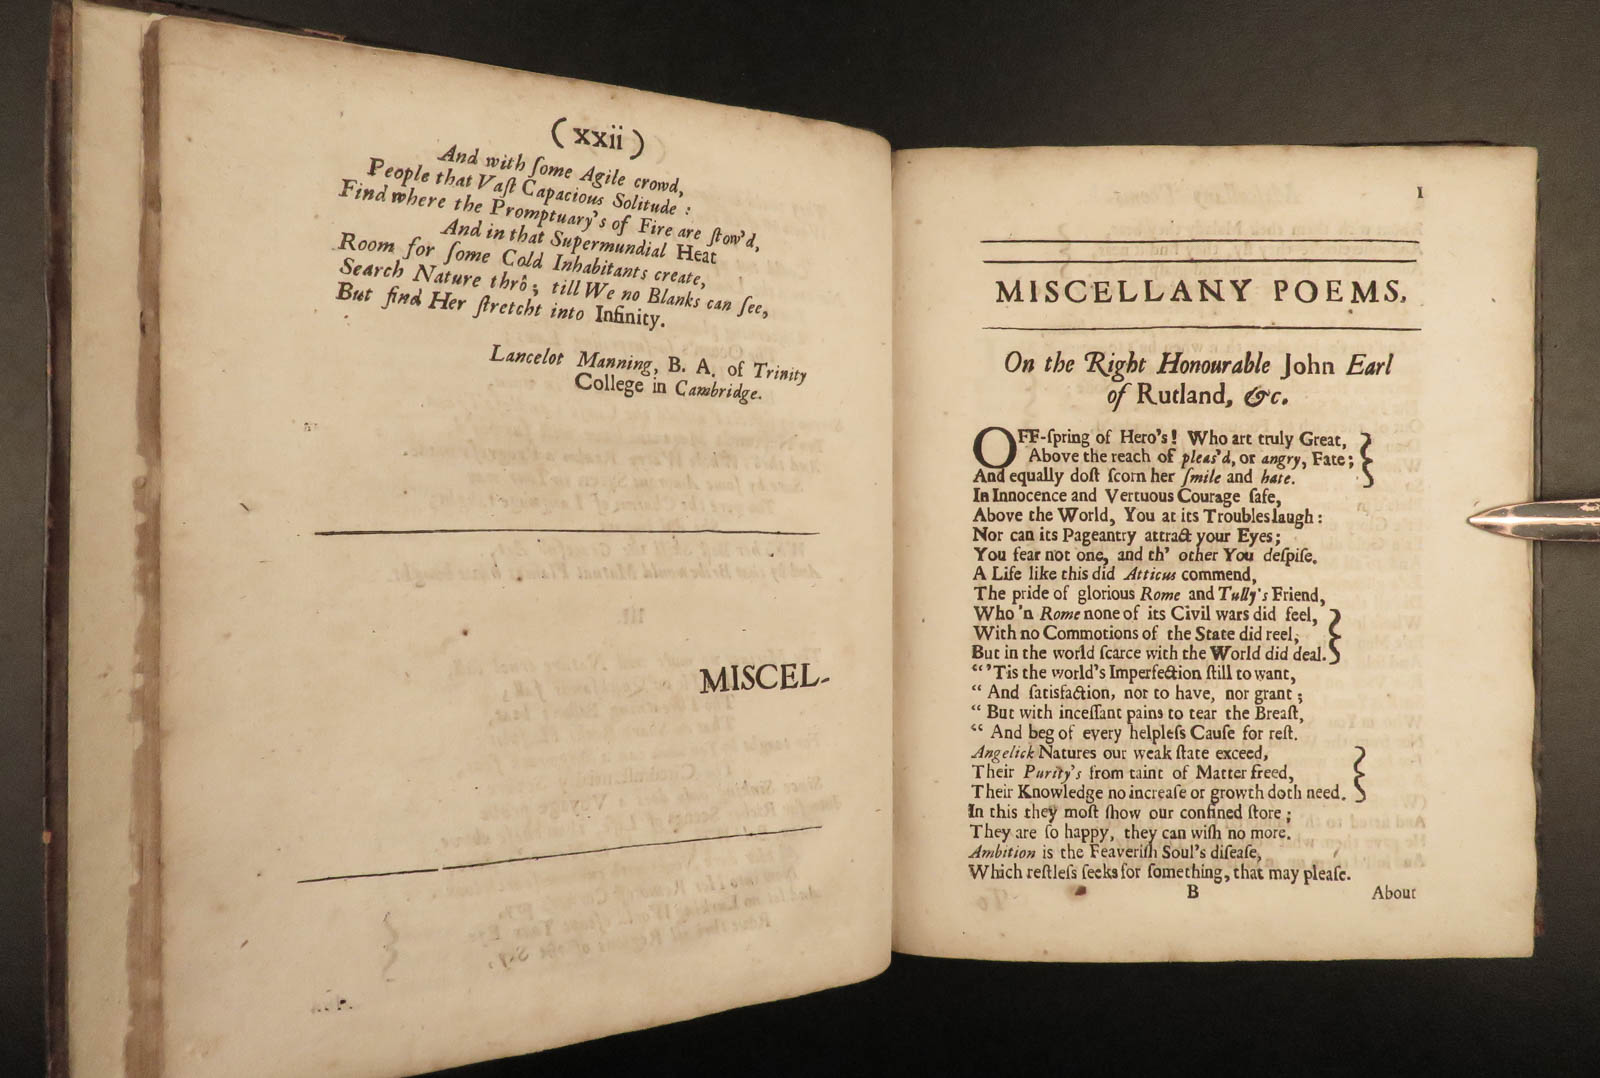 (xxii)
And with ſome Agile crowd,
People that Vaſt Capacious Solitude :
Find where the Promptuary's of Fire are ſtow'd,
And in that Supermundial Heat
Room for ſome Cold Inhabitants create,
Search Nature thrô; till We no Blanks can ſee,
But find Her ſtretcht into Infinity.
Lancelot Manning, B. A. of Trinity
College in Cambridge.
MISCEL-
1
MISCELLANY POEMS.
On the Right Honourable John Earl
of Rutland, &c.
OFF-ſpring of Hero's! Who art truly Great,
Above the reach of pleas'd, or angry, Fate;
And equally doſt ſcorn her ſmile and hate.
In Innocence and Vertuous Courage ſafe,
Above the World, You at its Troubles laugh :
Nor can its Pageantry attract your Eyes;
You fear not one, and th' other You deſpiſe.
A Life like this did Atticus commend,
The pride of glorious Rome and Tully's Friend,
Who 'n Rome none of its Civil wars did feel,
With no Commotions of the State did reel,
But in the world ſcarce with the World did deal.
“ 'Tis the world's Imperfection ſtill to want,
“ And ſatisfaction, nor to have, nor grant ;
“ But with inceſſant pains to tear the Breaſt,
“ And beg of every helpleſs Cauſe for reſt.
Angelick Natures our weak ſtate exceed,
Their Purity's from taint of Matter freed,
Their Knowledge no increaſe or growth doth need.
In this they moſt ſhow our confined ſtore ;
They are ſo happy, they can wiſh no more.
Ambition is the Feaveriſh Soul's diſeaſe,
Which reſtleſs ſeeks for ſomething, that may pleaſe.
B
About